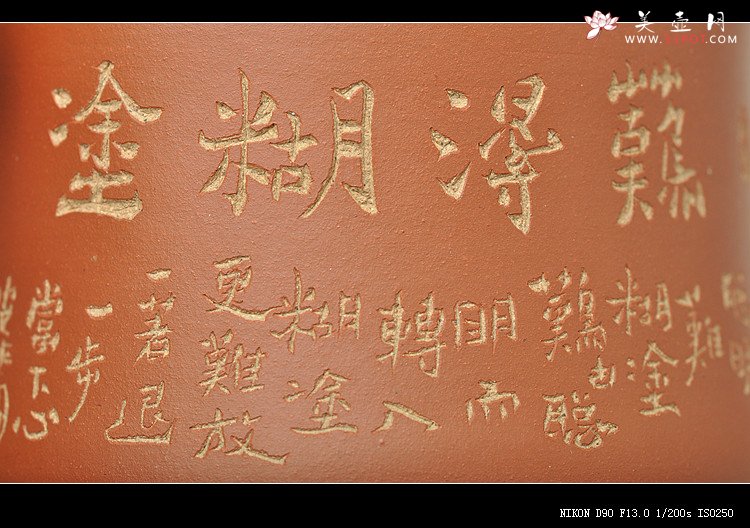 美壶网
難得糊塗
難
糊塗
難由聰
明而
轉入
糊塗
更難放
一著退
一步
當下心
NIKON D90 F13.0 1/200s ISO250